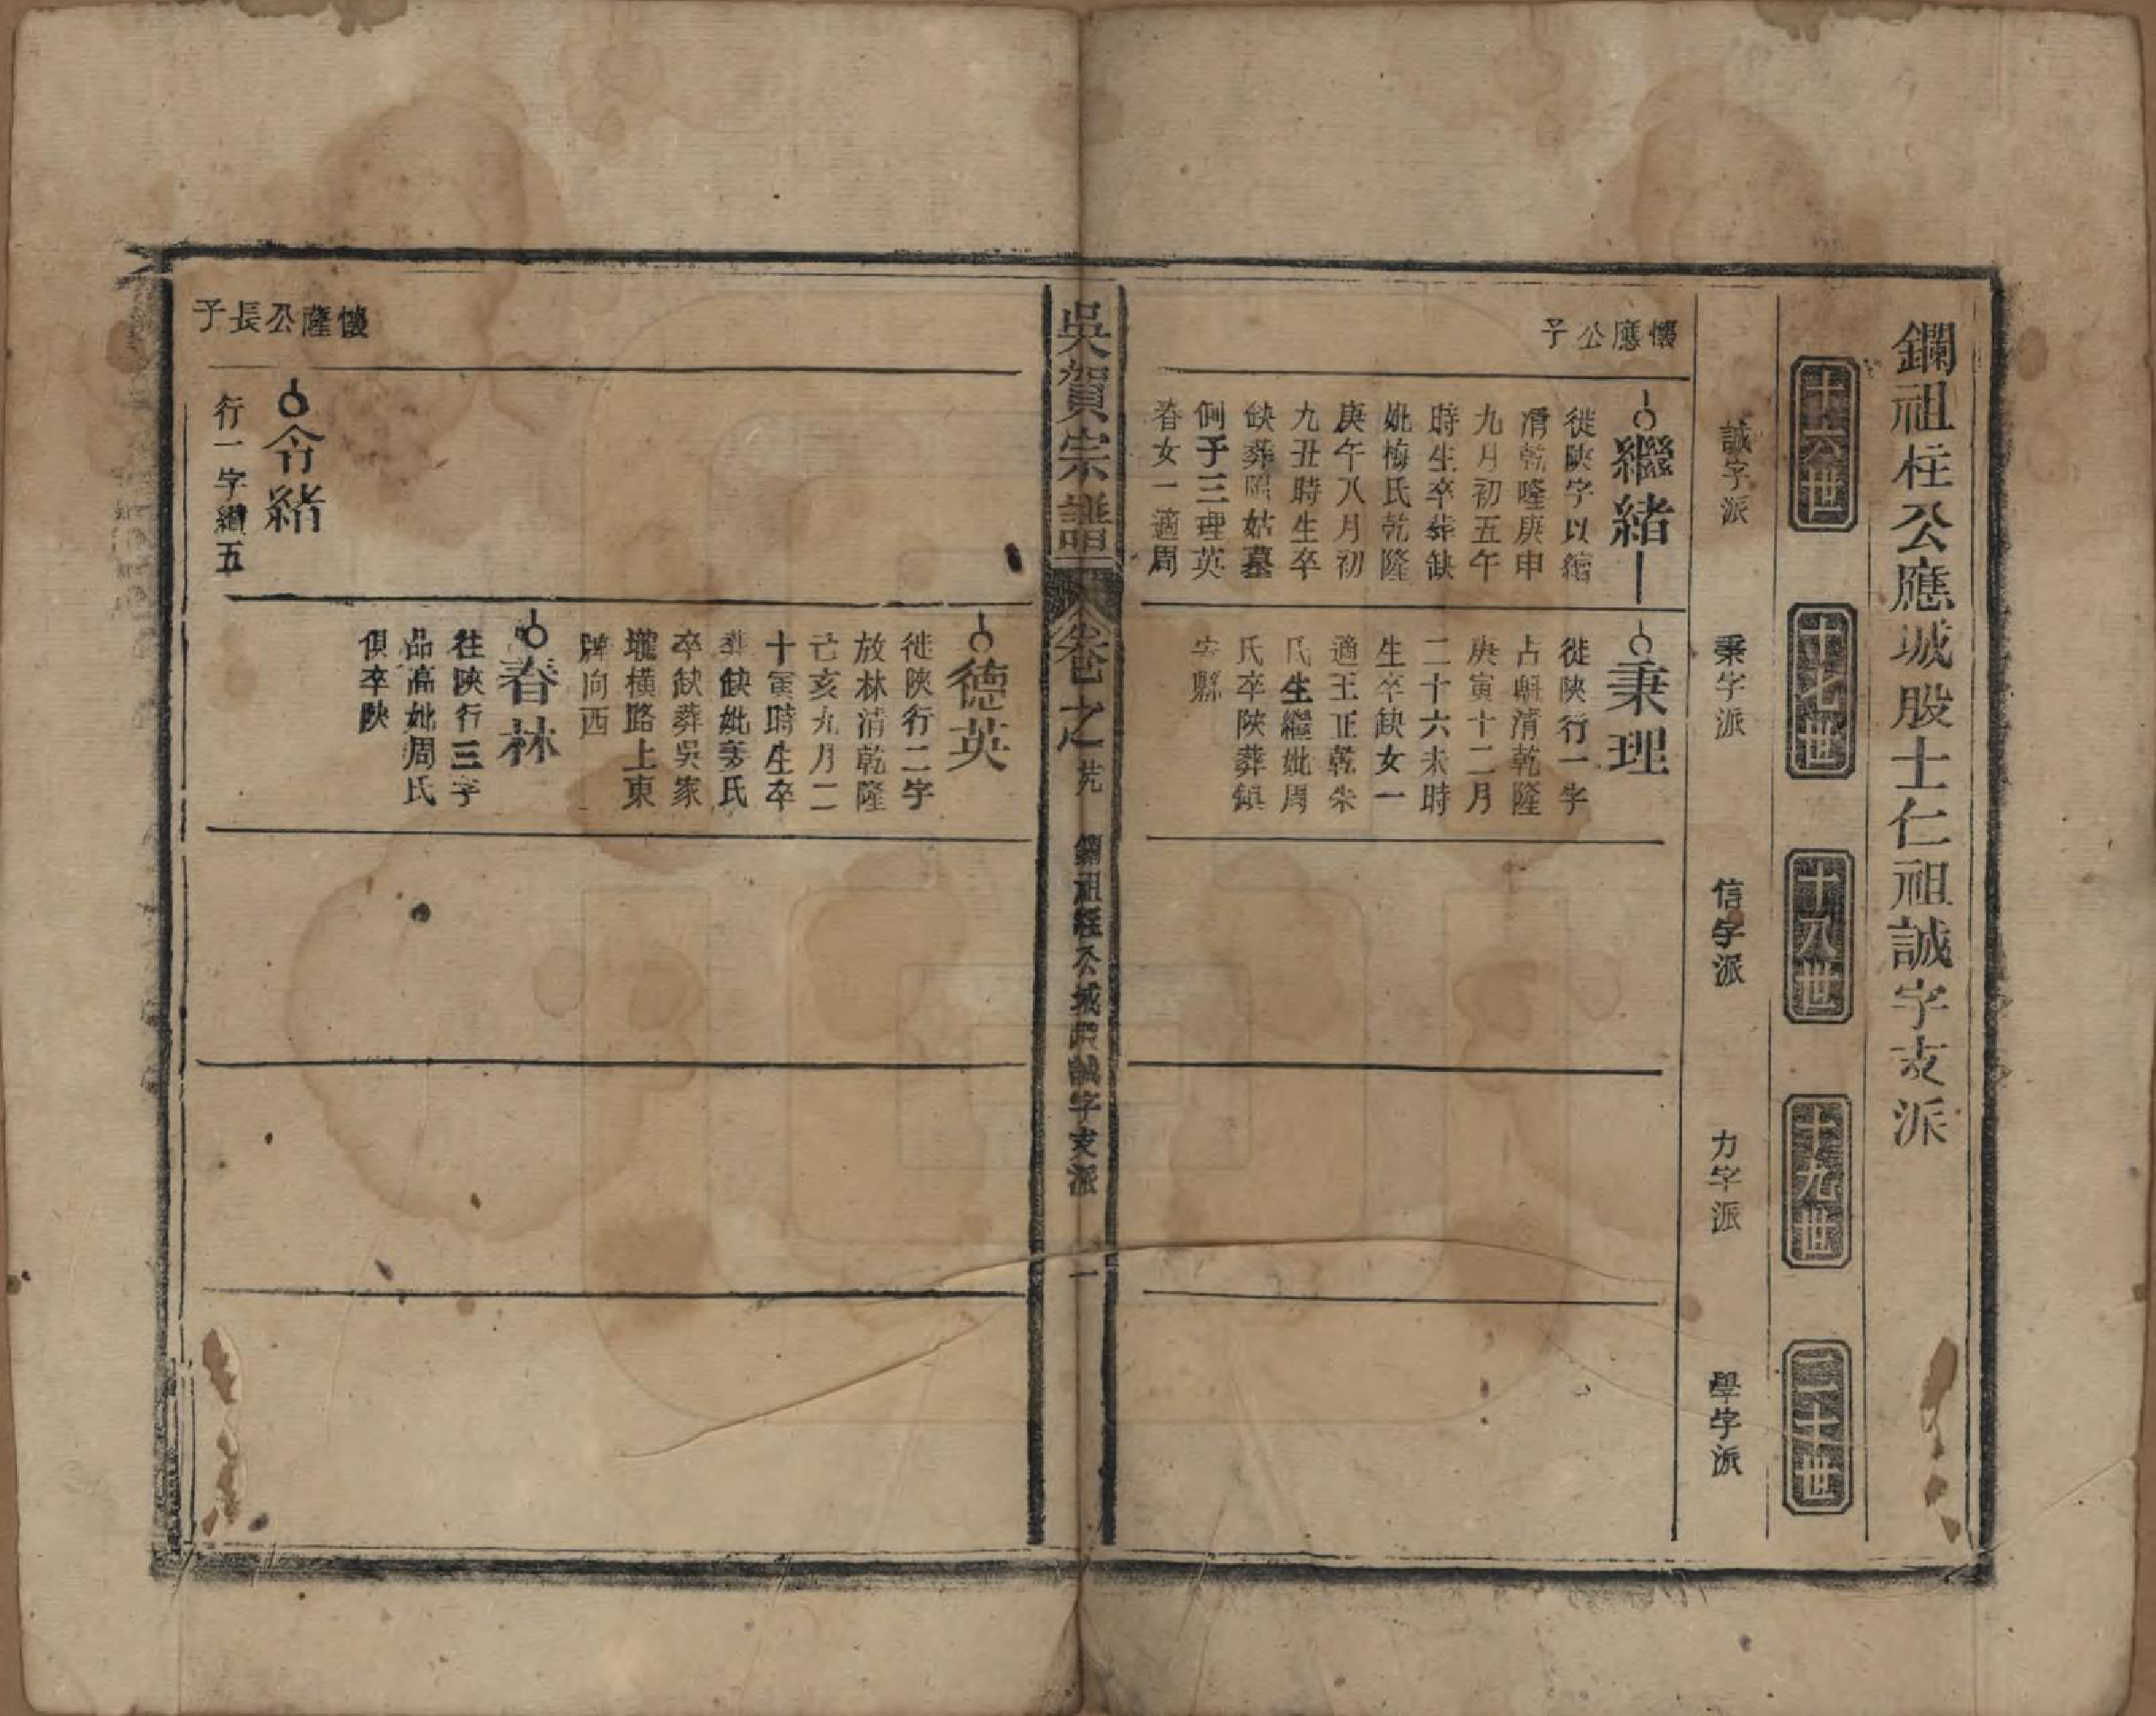 鑭祖柱公應城股士仁祖誠字支派
十六世
十七世
十八世
十九世
二十世
誠字派
秉字派
信字派
力字派
學字派
懷應公子
繼緒
徙陝字以縮
清乾隆庚申
九月初五午
時生卒葬缺
妣梅氏乾隆
庚午八月初
九丑時生卒
缺葬
姑墓
側子三理英
春女一適周
秉理
徙陝行一字
占
清乾隆
庚寅十二月
二十六未時
生卒缺女一
適王正乾朱
氏生繼妣周
氏卒陝葬鎮
安縣
吳賀宗譜
卷之
鑭祖柱公城股誠字支派
一
德英
徙陝行二字
放林清乾隆
己亥九月二
十寅時生卒
葬缺妣
氏
卒缺葬吳家
壠橫路上東
向西
春林
往陝行三字
品高妣周氏
俱卒陝
懷隆公長子
令緒
行一字纘五